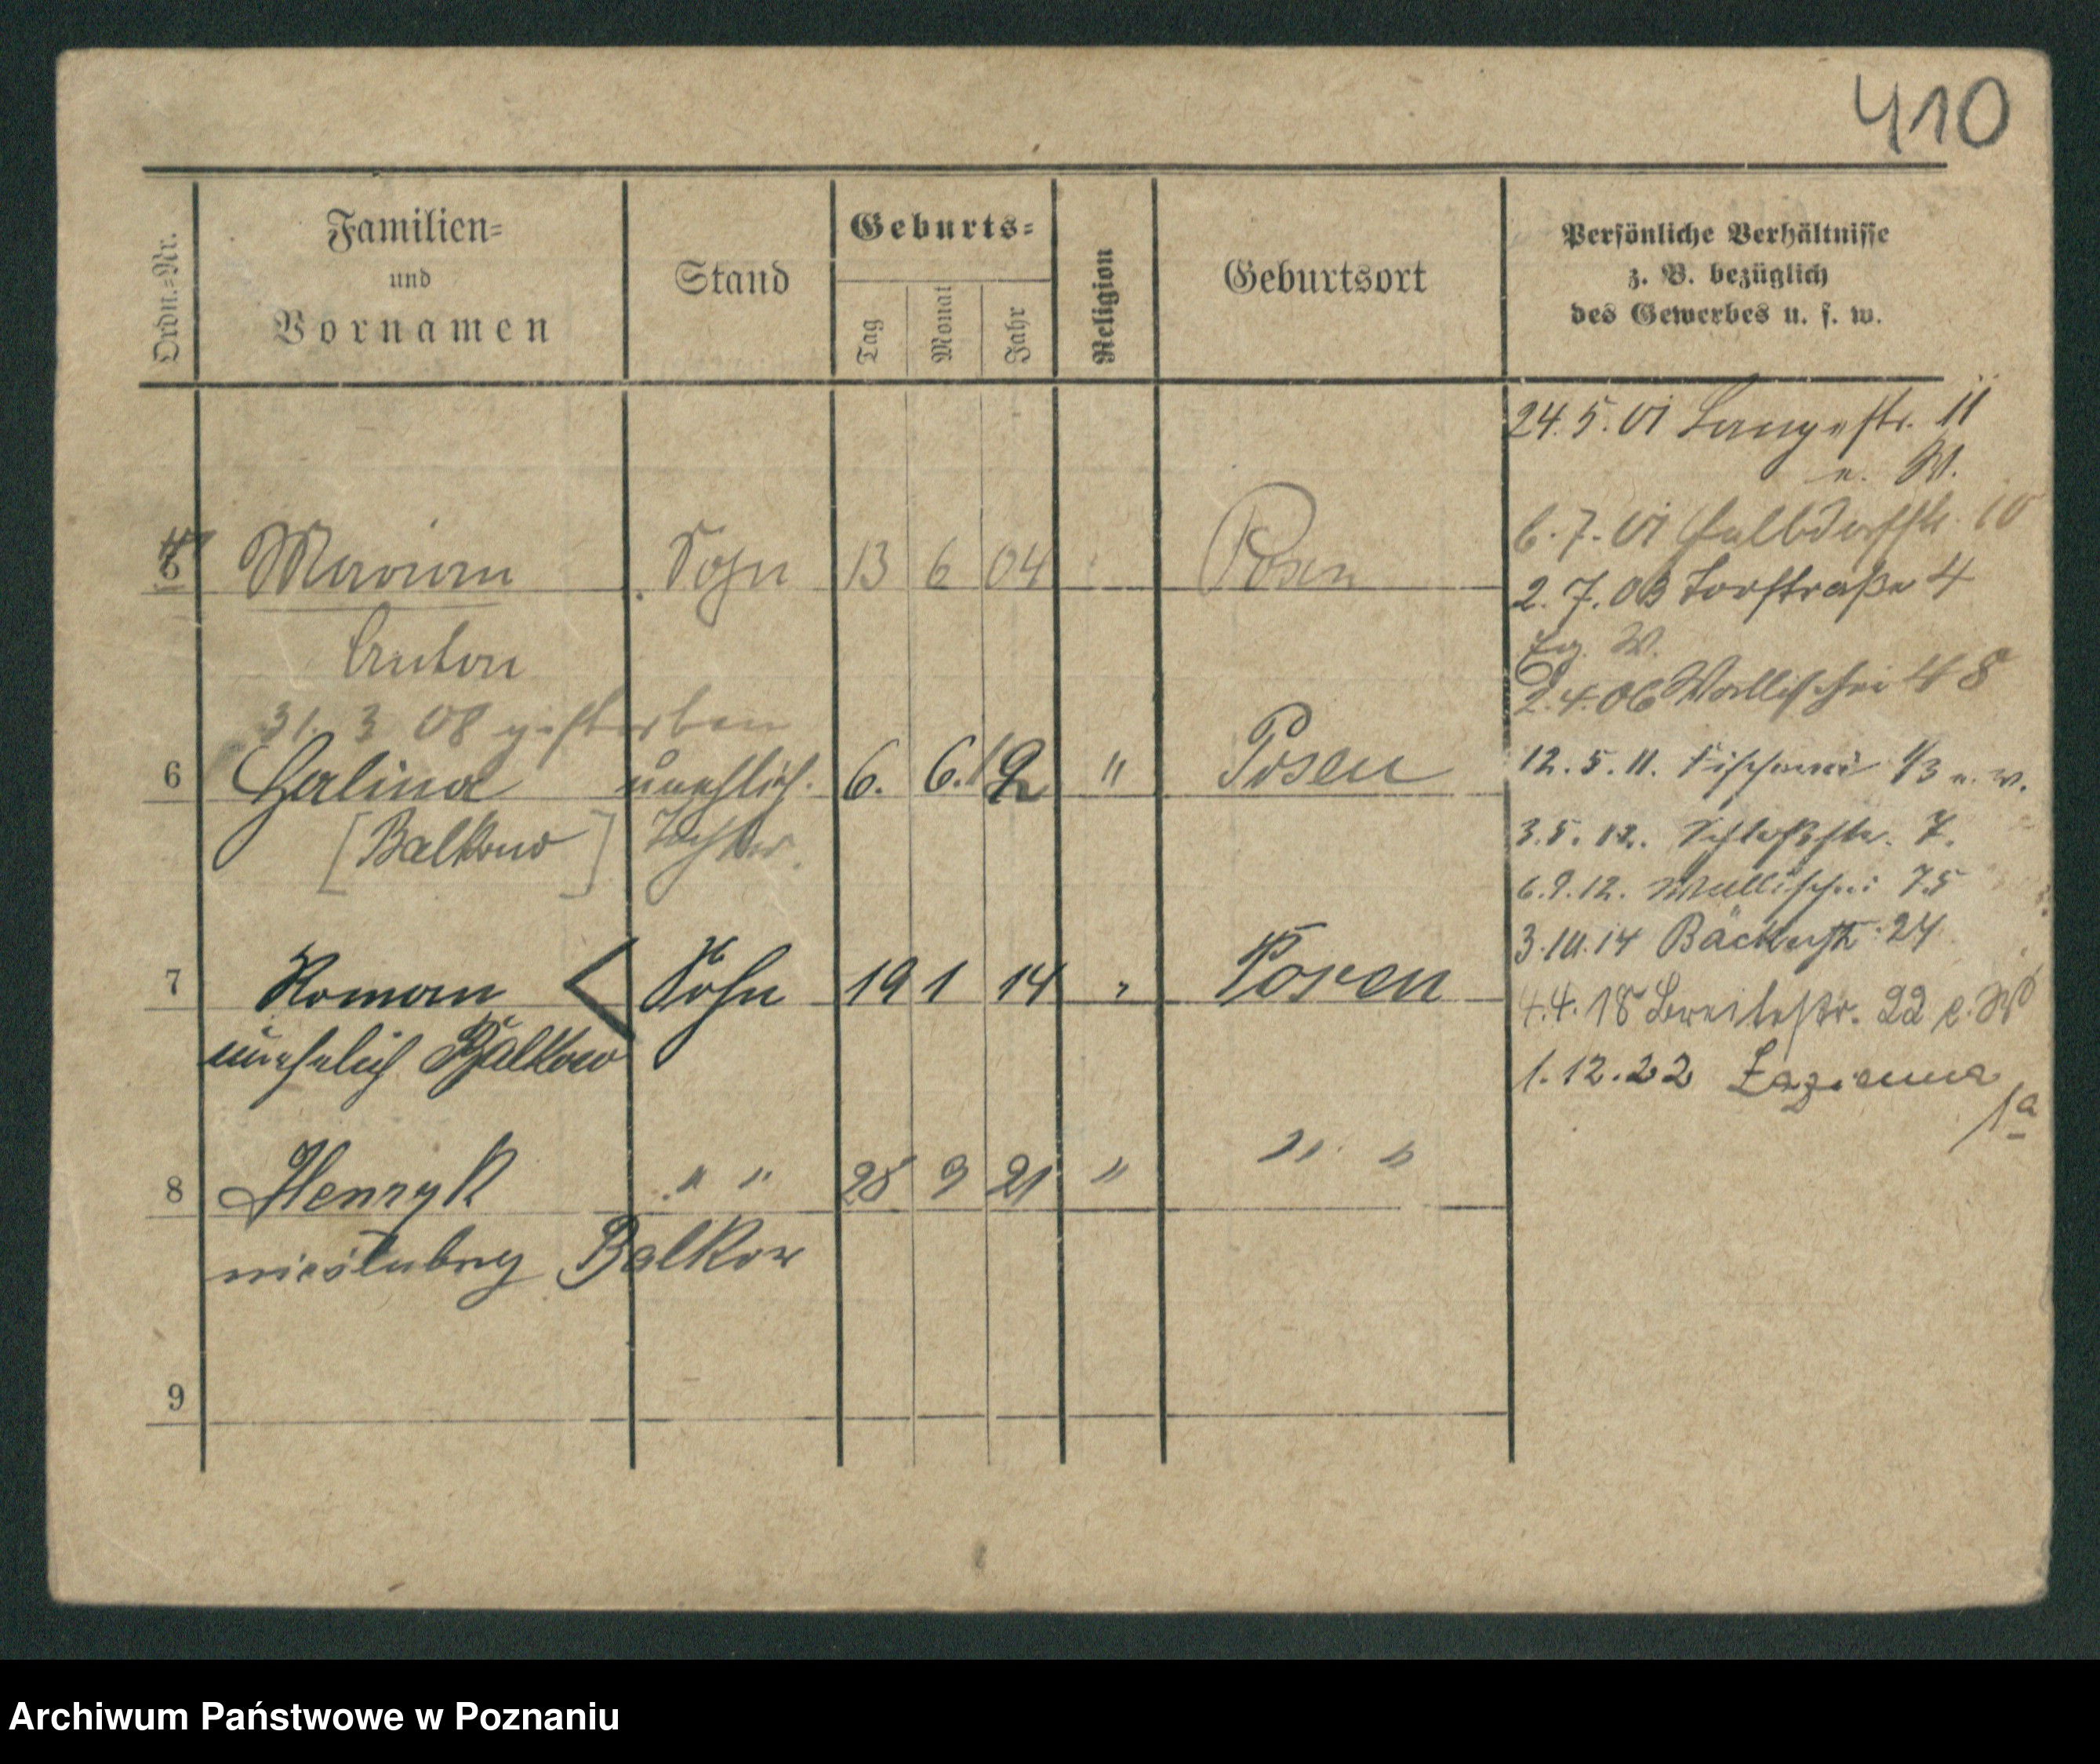 410
Ordn.=Nr.
Familien=
und
Vornamen
Stand
Geburts=
Tag
Monat
Jahr
Religion
Geburtsort
Persönliche Verhältnisse
z. B. bezüglich
des Gewerbes u. s. w.
24. 5. 01 Langestr. 11
u. W.
6. 7. 01 Halbdorfstr. 10
5 Marian Sohn 13 6 04 Posen
2. 7. 03 Torstraße 4
Anton
W.
2. 4. 06 Wallischei 48
31. 3 08 gestorben
6 Halina unehlich. 6. 6. 12 " Posen
12. 5. 11. Fischerei 1/3 u. w.
[Balkow] Tochter.
3. 5. 12. Schloßstr. 7.
6. 9. 12. Wallischei 75
3. 10. 14 Bäckerstr. 24
7 Roman < Sohn 19 1 14 " Posen
4. 4. 18 Breitestr. 22
unehelich Balkow
1. 12. 22 Łazienna
1a
8 Henryk " " 28 9 21 " " "
nieślubny Balkow
9
Archiwum Państwowe w Poznaniu